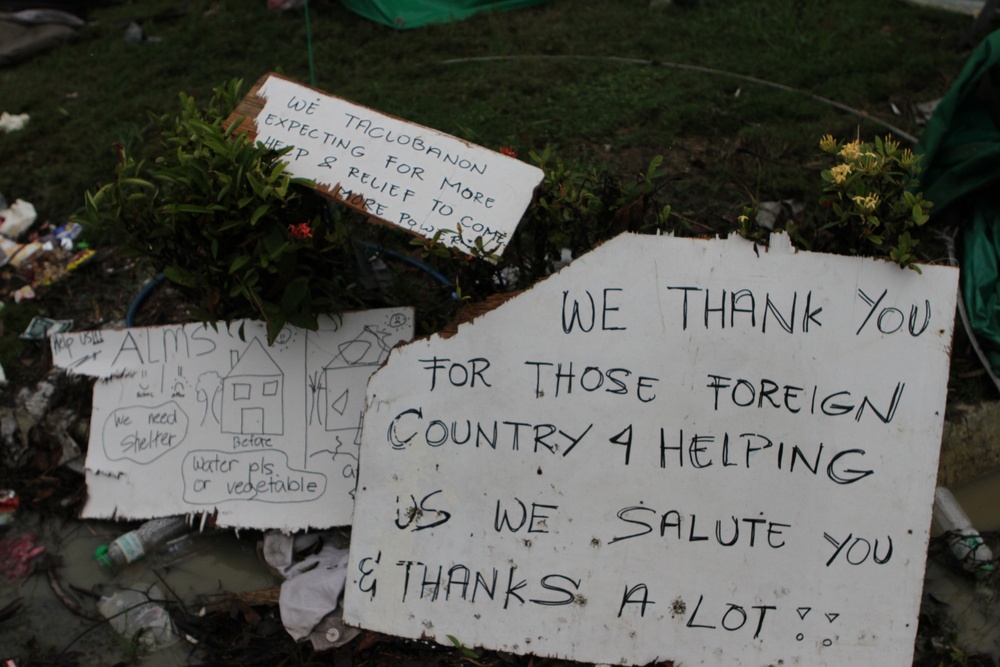 WE TACLOBANON
EXPECTING FOR MORE
HELP & RELIEF TO COME
MORE POWER
Help us!!!
ALMS
We need
Shelter
Before
Water pls.
or vegetable
WE THANK YOU
FOR THOSE FOREIGN
COUNTRY 4 HELPING
US WE SALUTE YOU
& THANKS A LOT!!